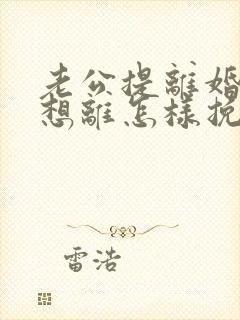 老公提離婚
想離怎樣挽
雷浩